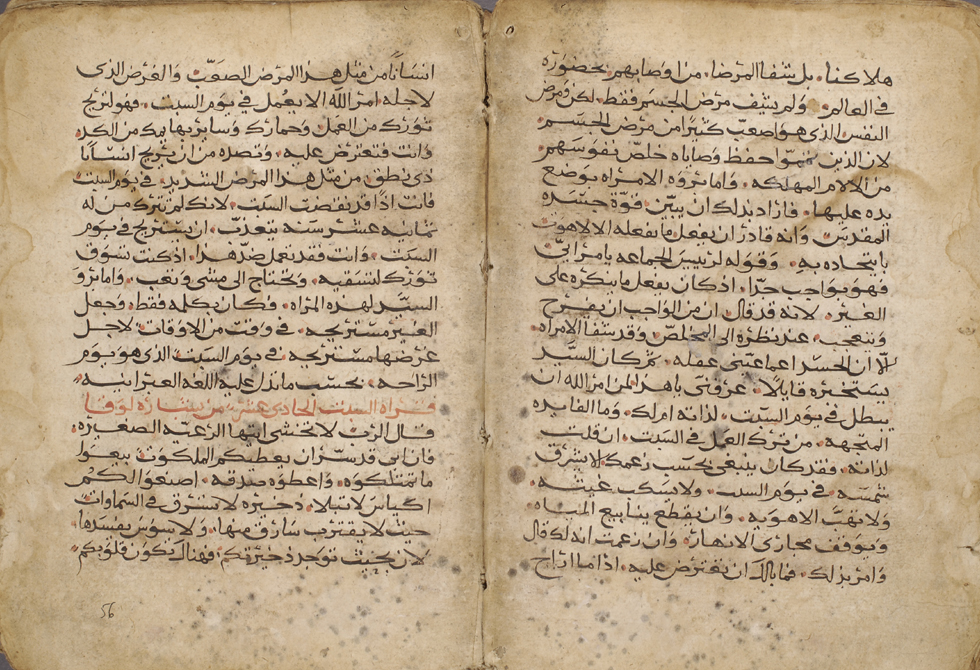 هلاكنا. بل شفا المرضا. من وصابهم بحضوره
في العالم. ولم يشف مرض الجسم فقط. لكن ومرض
النفس الذي هو اصعب كثيرًا من مرض الجسم.
لان الذين حفظ وصاياه خلص نفوسهم
من الالام المهلكه. واما ابروه الامراه بوضع
يده عليها. فاراد بذلك ان يبين قوة جسده
المقدس. وانه قادر ان يفعل ما يفعله الا لاهوت
باتحاده به. وقوله لرييس الجماعه يا مرايي
فهو بواجب جدًا. اذ كان يفعل ما ينكره على
الغير. لانه قد قال ان من الواجب ان يفرح
ويتعجب. عند نظره الى المخلص وقد شفا الامراه.
الا ان الحسد اعما عيني عقله. ثم كان السيد
يستخبره قايلًا. عرفني يا هدا لمن امر الله ان
يبطل في يوم السبت. لذاته ام لك. وما الفايده
المتجهه. من ترك العمل في السبت. ان قلت
لذاته. فقد كان ينبغي بحسب زعمك الا يشرق
شمسه. في يوم السبت. ولا يسكب غيثه.
ولا تهب الاهويه. وان يقطع ينابيع المياه
ويوقف مجاري الانهار. وان زعمت انه لك قال
وامر بذلك. فما بالك ان تعترض عليه. اذا ما اراح
انسانًا من مثل هذا المرض الصعب. والغرض الذي
لاجله امر الله الا يعمل في يوم السبت. فهو لتريح
ثورك من العمل وحمارك وسايربهايمك من الكد.
وانت فتعترض عليه. وتصده من ان يريح انسانًا
ذي نطق. من مثل هذا المرض الشديد. في يوم السبت
فانت اذًا قد نقضت السبت. لانك لم تترك من له
ثمانيه عشر سنه يتعذب. ان يستريح في يوم
السبت. وانت فقد تعمل ضد هذا. اذ كنت تسوق
ثورك لتسقيه. وتحتاج الى مشي وتعب. واما برو
السيد لهذه المراه. فكان بكلمه فقط. وجعل
الغير مستريحه. في وقت من الاوقات. لاجل
غرضها مستريحه. في يوم السبت الذي هو يوم
الراحه. بحسب ما تدل عليه اللغه العبرانيه.
قراه السبت الحادي عشر من بشاره لوقا
قال الرب لا تخشي ايتها الرعيه الصغيره.
فان ابي قد سر ان يعطيكم الملكوت. بيعوا
ما تمتلكوه. واعطوه صدقه. اصنعوا لكم
اكياس لا تبلا. ذخيره لا تسرق في السماوات
حيث لا يقترب سارق منها. ولا سوس يفسدها
لان بحيث توجد ذخيرتكم. فهناك تكون قلوبكم
56